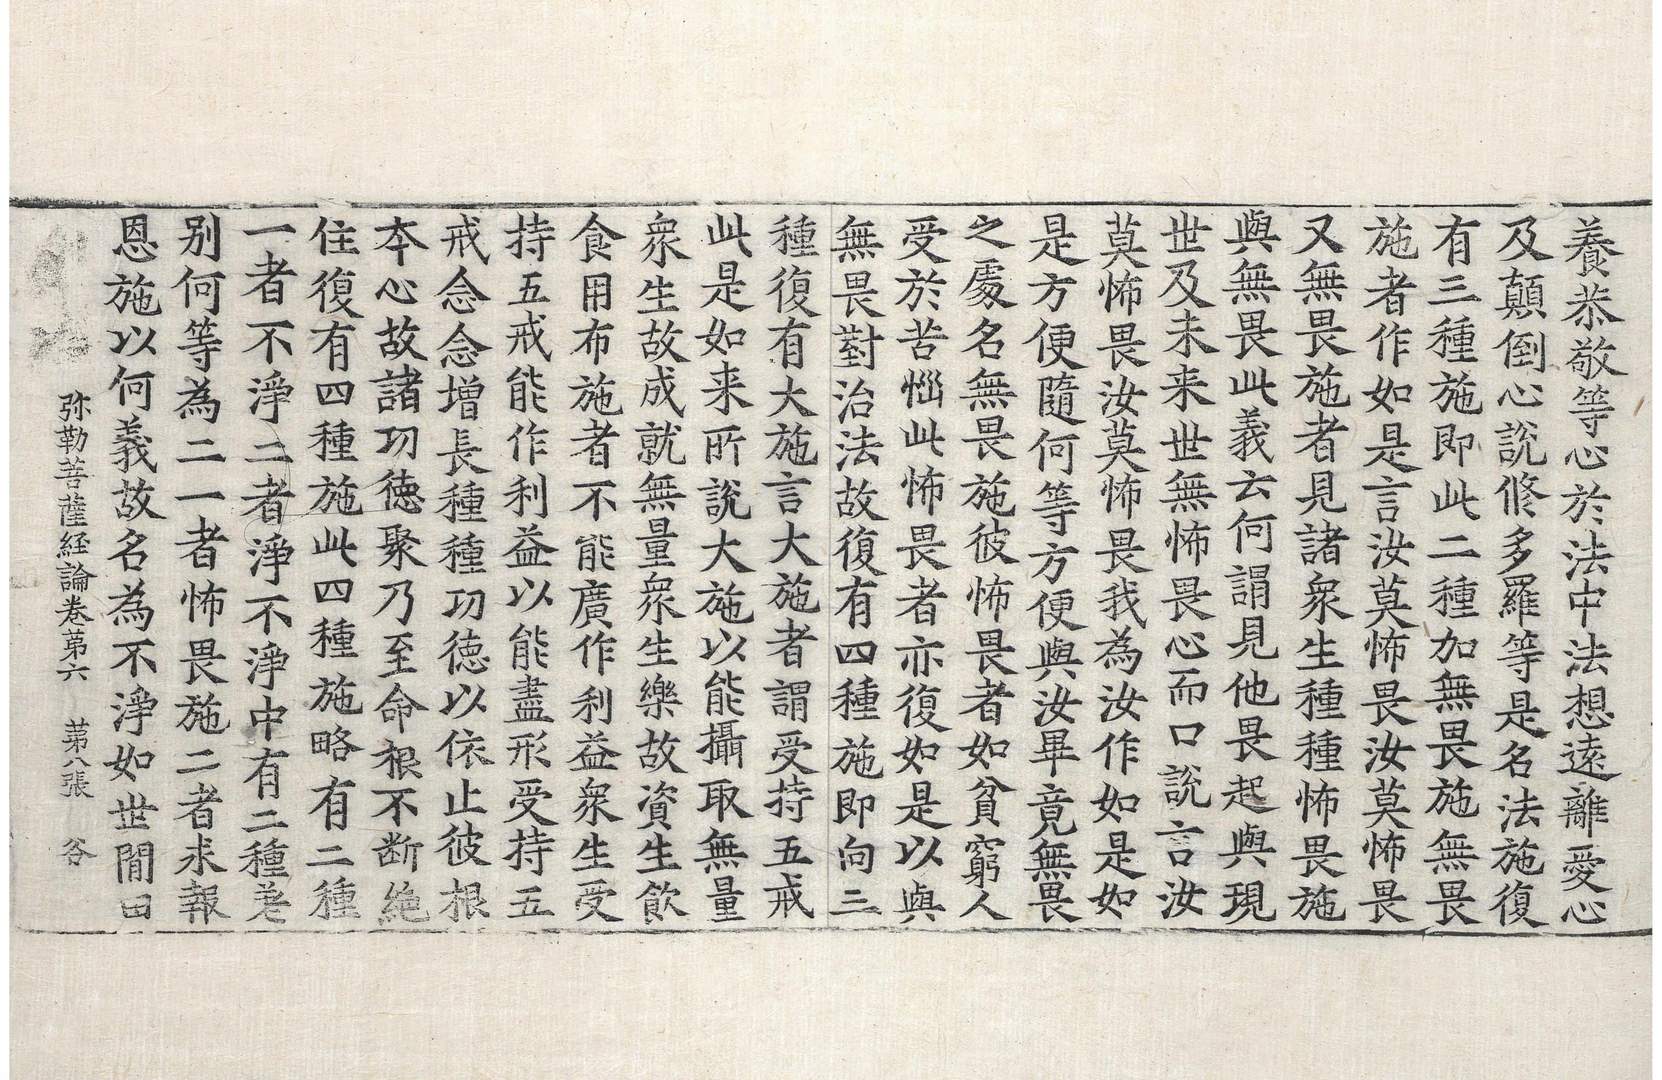 養恭敬等心於法中法想遠離愛心
及顛倒心說修多羅等是名法施復
有三種施即此二種加無畏施無畏
施者作如是言汝莫怖畏汝莫怖畏
又無畏施者見諸衆生種種怖畏施
與無畏此義云何謂見他畏起與現
世及未来世無怖畏心而口說言汝
莫怖畏汝莫怖畏我為汝作如是如
是方便隨何等方便與汝畢竟無畏
之處名無畏施彼怖畏者如貧窮人
受於苦惱此怖畏者亦復如是以與
無畏對治法故復有四種施即向三
種復有大施言大施者謂受持五戒
此是如来所說大施以能攝取無量
衆生故成就無量衆生樂故資生飲
食用布施者不能廣作利益衆生受
持五戒能作利益以能盡形受持五
戒念念增長種種功德以依止彼根
本心故諸功德聚乃至命根不断絶
住復有四種施此四種施略有二種
一者不淨二者淨不淨中有二種差
別何等為二一者怖畏施二者求報
恩施以何義故名為不淨如世間田
弥勒菩薩経論卷苐六 苐八張 谷